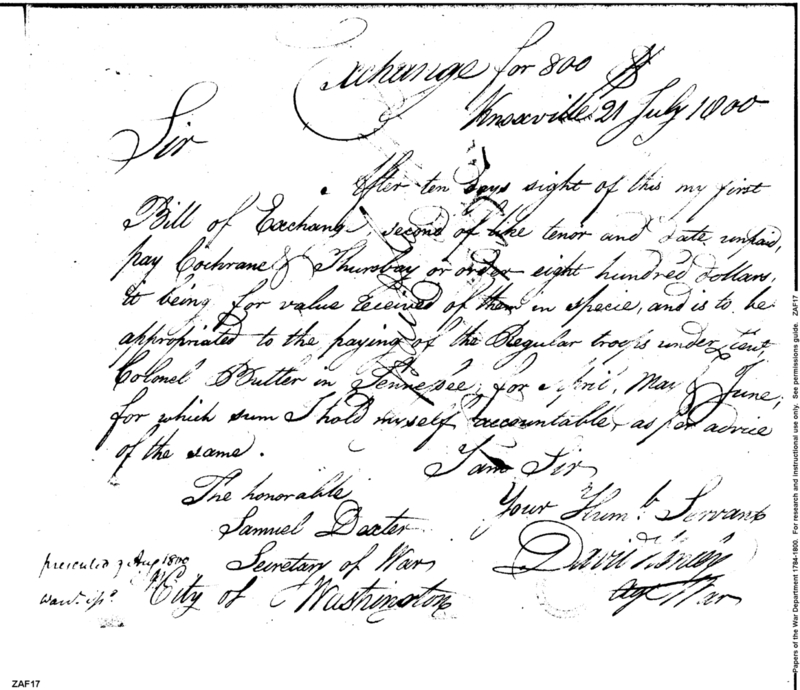 Exchange for 800 $
Knoxville 21 July 1800
Sir
After ten days sight of this my first
Bill of Exchange, second of like tenor and date unpaid,
pay Cochrane & Thursbay or order eight hundred dollars,
it being for value received of them in specie, and is to be
appropriated to the paying of the Regular troops under Lieut.
Colonel Butler in Tennessee, for April, May & June,
for which sum I hold myself accountable as per advice
of the same.
I am Sir
Your Humb. Servant
David Henley
Agt War
The honorable
Samuel Dexter
Secretary of War
City of Washington
presented 9 Aug 1800
ZAF17
Papers of the War Department 1784-1800. For research and instructional use only. See permissions guide. ZAF17